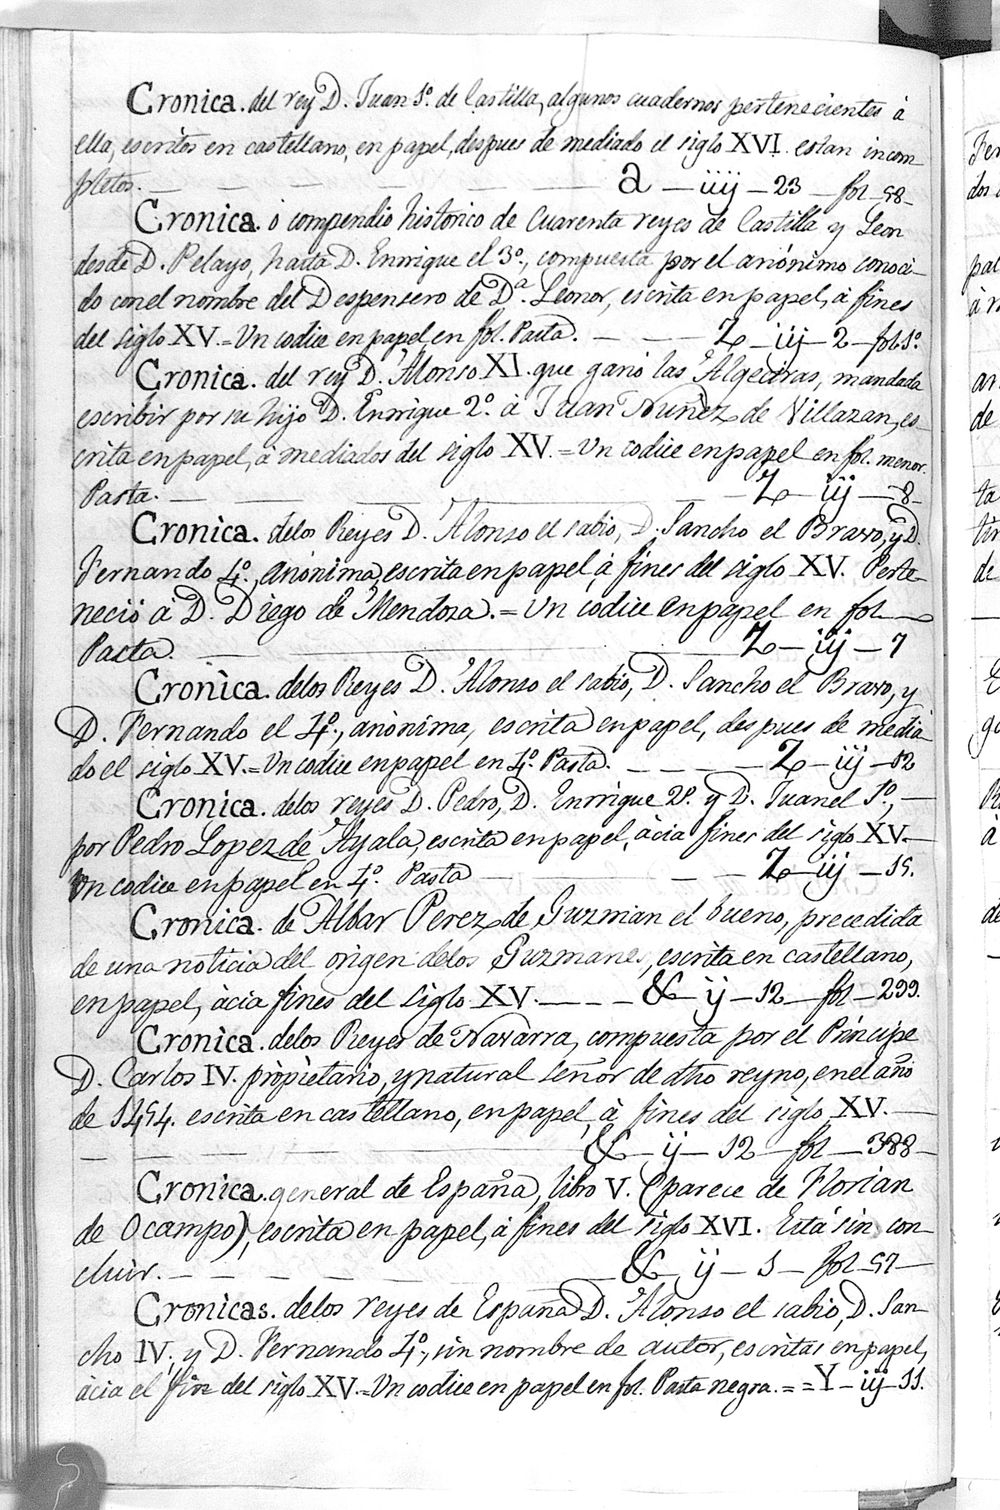 Cronica. del rey D. Juan 1º. de Castilla, algunos cuadernos pertenecientes á
ella, escritos en castellano, en papel, despues de mediado el siglo XVI. estan incom-
pletos. — a — iiij — 23 — fol — 98 —
Cronica. ó compendio historico de Cuarenta reyes de Castilla y Leon
desde D. Pelayo, hasta D. Enrrique el 3º., compuesta por el anónimo conoci-
do con el nombre del Despensero de Dª. Leonor, escrita en papel, á fines
del siglo XV. = Un codice en papel en fol. Pasta. — Z — iij — 2 — fol 1º.
Cronica. del rey D. Alonso XI. que ganó las Algeciras, mandada
escribir por su hijo D. Enrrique 2º. á Juan Nuñez de Villazan, es-
crita en papel, á mediados del siglo XV. = Un codice en papel en fol. menor.
Pasta. — Z — iij — 8 —
Cronica. delos Reyes D. Alonso el sabio, D. Sancho el Bravo, y D.
Fernando 4º., anónima, escrita en papel á fines del siglo XV. Perte-
neció á D. Diego de Mendoza. = Un codice en papel en fol —
Pasta. — Z — iij — 7
Cronica. delos Reyes D. Alonso el sabio, D. Sancho el Bravo, y
D. Fernando el 4º., anónima, escrita en papel, despues de media-
do el siglo XV. = Un codice en papel en 4º. Pasta. — Z — iij — 12
Cronica. delos reyes D. Pedro, D. Enrrique 2º. y D. Juan el 1º., —
por Pedro Lopez de Ayala, escrita en papel, ácia fines del siglo XV. —
Un codice en papel en 4º. Pasta — Z — iij — 15.
Cronica. de Albar Perez de Guzman el bueno, precedida
de una noticia del origen delos Guzmanes, escrita en castellano,
en papel, ácia fines del siglo XV. — & — ij — 12 — fol — 299.
Cronica. delos Reyes de Navarra, compuesta por el Principe
D. Carlos IV. propietario, y natural señor de dho reyno, en el año
de 1454. escrita en castellano, en papel, á fines del siglo XV. —
— & — ij — 12 — fol — 388 —
Cronica. general de España, libro V. (parece de Florian
de Ocampo), escrita en papel, á fines del siglo XVI. Está sin con-
cluir. — & — ij — 1 — fol — 57 —
Cronicas. delos reyes de España D. Alonso el sabio, D. San-
cho IV., y D. Fernando 4º., sin nombre de autor, escritas en papel,
ácia el fin del siglo XV. = Un codice en papel en fol. Pasta negra. = = Y — iij — 11.